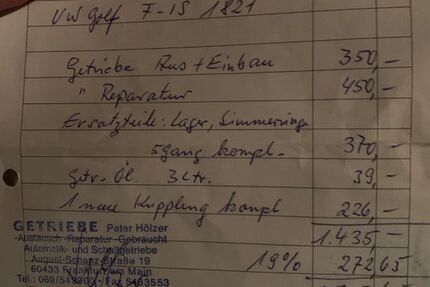 VW Golf F-IS 1821
Getriebe Aus + Einbau 350,-
" Reparatur 450,-
Ersatzteile: Lager, Simmerringe
5gang kompl. 370,-
Getr. Öl. 3 Ltr. 39,-
1 neue Kupplung kompl 226,-
1.435,-
19% 272,65
GETRIEBE Peter Hölzer
-Austausch-Reparatur-Gebraucht
Automatik- und Schaltgetriebe
August-Schanz-Straße 19
60433 Frankfurt am Main
Tel.: 069/